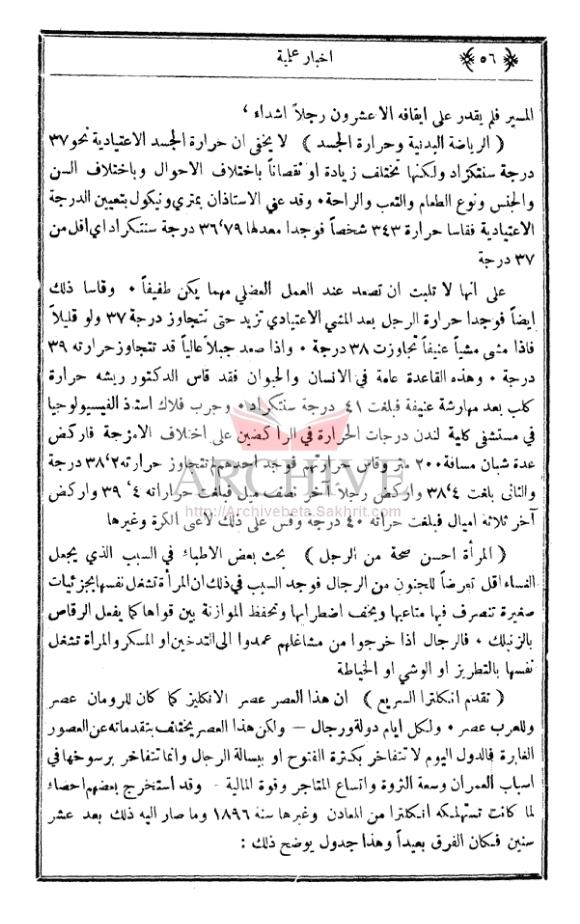 ﴿ ٥٦ ﴾
اخبار علمية
المسير فلم يقدر على ايقافه الا عشرون رجلاً اشداء ،
( الرياضة البدنية وحرارة الجسد ) لا يخفى ان حرارة الجسد الاعتيادية نحو ٣٧
درجة سنتكراد ولكنها تختلف زيادة او نقصاناً باختلاف الاحوال وباختلاف السن
والجنس ونوع الطعام والتعب والراحة ٠ وقد عني الاستاذان يمتري ونيكول بتعيين الدرجة
الاعتيادية فقاسا حرارة ٣٤٣ شخصاً فوجدا معدلها ٣٦٬٧٩ درجة سنتكراد اي اقل من
٣٧ درجة
على انها لا تلبث ان تصعد عند العمل العضلي مهما يكن طفيفاً ٠ وقاسا ذلك
ايضاً فوجدا حرارة الرجل بعد المشي الاعتيادي تزيد حتى تتجاوز درجة ٣٧ ولو قليلاً
فاذا مشى مشياً عنيفاً تجاوزت ٣٨ درجة ٠ واذا صعد جبلاً عالياً قد تتجاوز حرارته ٣٩
درجة ٠ وهذه القاعدة عامة في الانسان والحيوان فقد قاس الدكتور ريشه حرارة
كلب بعد مهارشة عنيفة فبلغت ٤١ درجة سنتكراد ٠ وجرب فلاك استاذ الفيسيولوجيا
في مستشفى كلية لندن درجات الحرارة في الراكضين على اختلاف الامزجة فاركض
عدة شبان مسافة ٢٠٠ متر وقاس حرارتهم فوجد احدهم تتجاوز حرارته ٣٨٬٢ درجة
والثاني بلغت ٣٨٬٤ واركض رجلاً آخر نصف ميل فبلغت حراراته ٣٩٬٤ واركض
آخر ثلاثة اميال فبلغت حراته ٤٠ درجة وقس على ذلك لاعبي الكرة وغيرها
( المرأة احسن صحة من الرجل ) بحث بعض الاطباء في السبب الذي يجعل
النساء اقل تعرضاً للجنون من الرجال فوجد السبب في ذلك ان المرأة تشغل نفسها بجزئيات
صغيرة تنصرف فيها متاعبها ويخف اضطرابها وتحفظ الموازنة بين قواها كما يفعل الرقاص
بالزنبلك ٠ فالرجال اذا خرجوا من مشاغلهم عمدوا الى التدخين او المسكر والمرأة تشغل
نفسها بالتطريز او الوشي او الخياطة
( تقدم انكلترا السريع ) ان هذا العصر عصر الانكليز كما كان للرومان عصر
وللعرب عصر ٠ ولكل ايام دولة ورجال — ولكن هذا العصر يختلف بتقدماته عن العصور
الغابرة فالدول اليوم لا تتفاخر بكثرة الفتوح او ببسالة الرجال وانما تتفاخر برسوخها في
اسباب العمران وسعة الثروة واتساع المتاجر وقوة المالية - وقد استخرج بعضهم احصاء
لما كانت تستهلكه انكلترا من المعادن وغيرها سنة ١٨٩٦ وما صار اليه ذلك بعد عشر
سنين فكان الفرق بعيداً وهذا جدول يوضح ذلك :
ARCHIVE
http://Archivebeta.Sakhrit.com